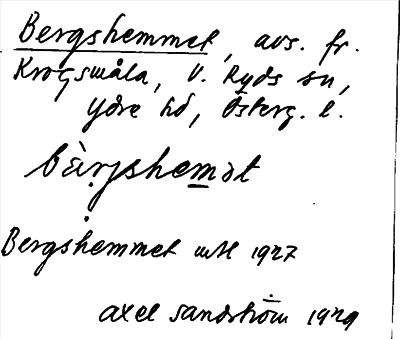 Bergshemmet, avs. fr.
Krogsmåla, V. Ryds sn,
Ydre hd, Österg. l.
bàrjshemət
Bergshemmet 1927
Axel Sandström 1929